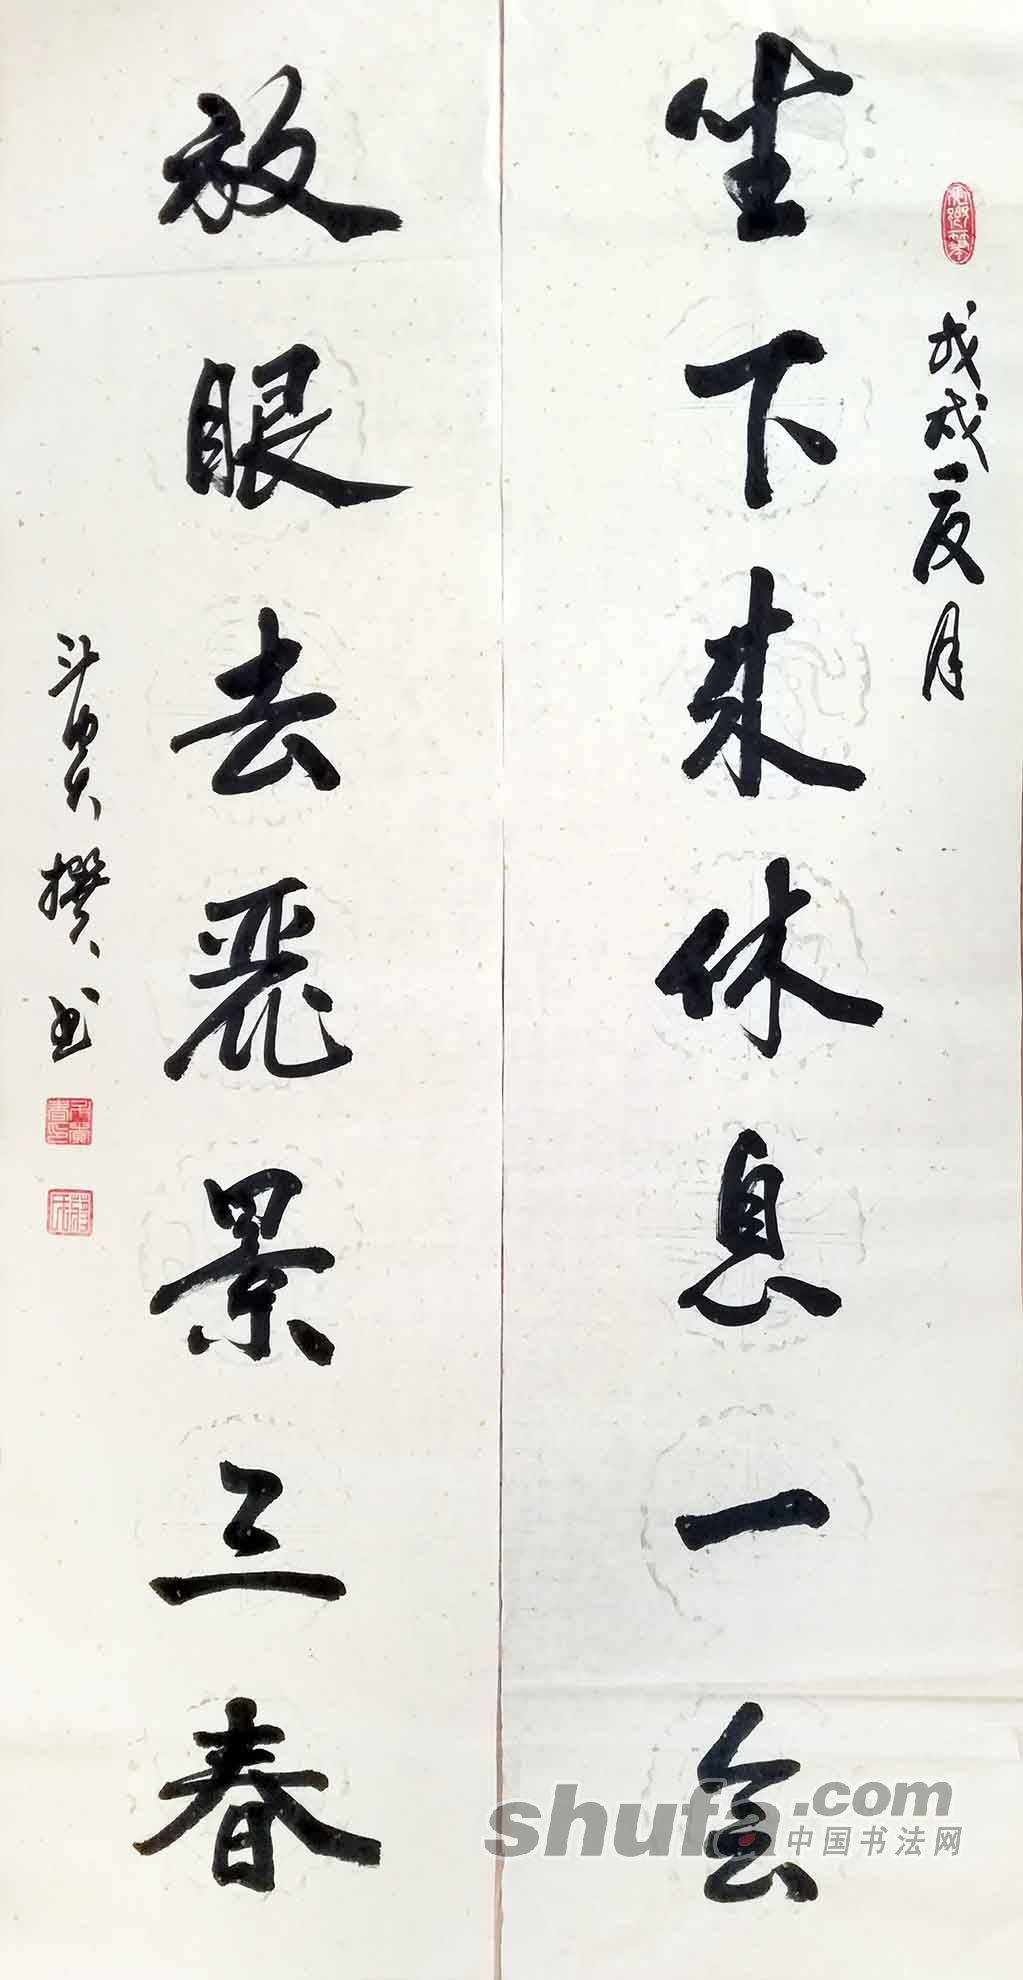 戊戌夏月
坐下来休息一会
放眼去丽景三春
撰书
shufa.com
中国书法网